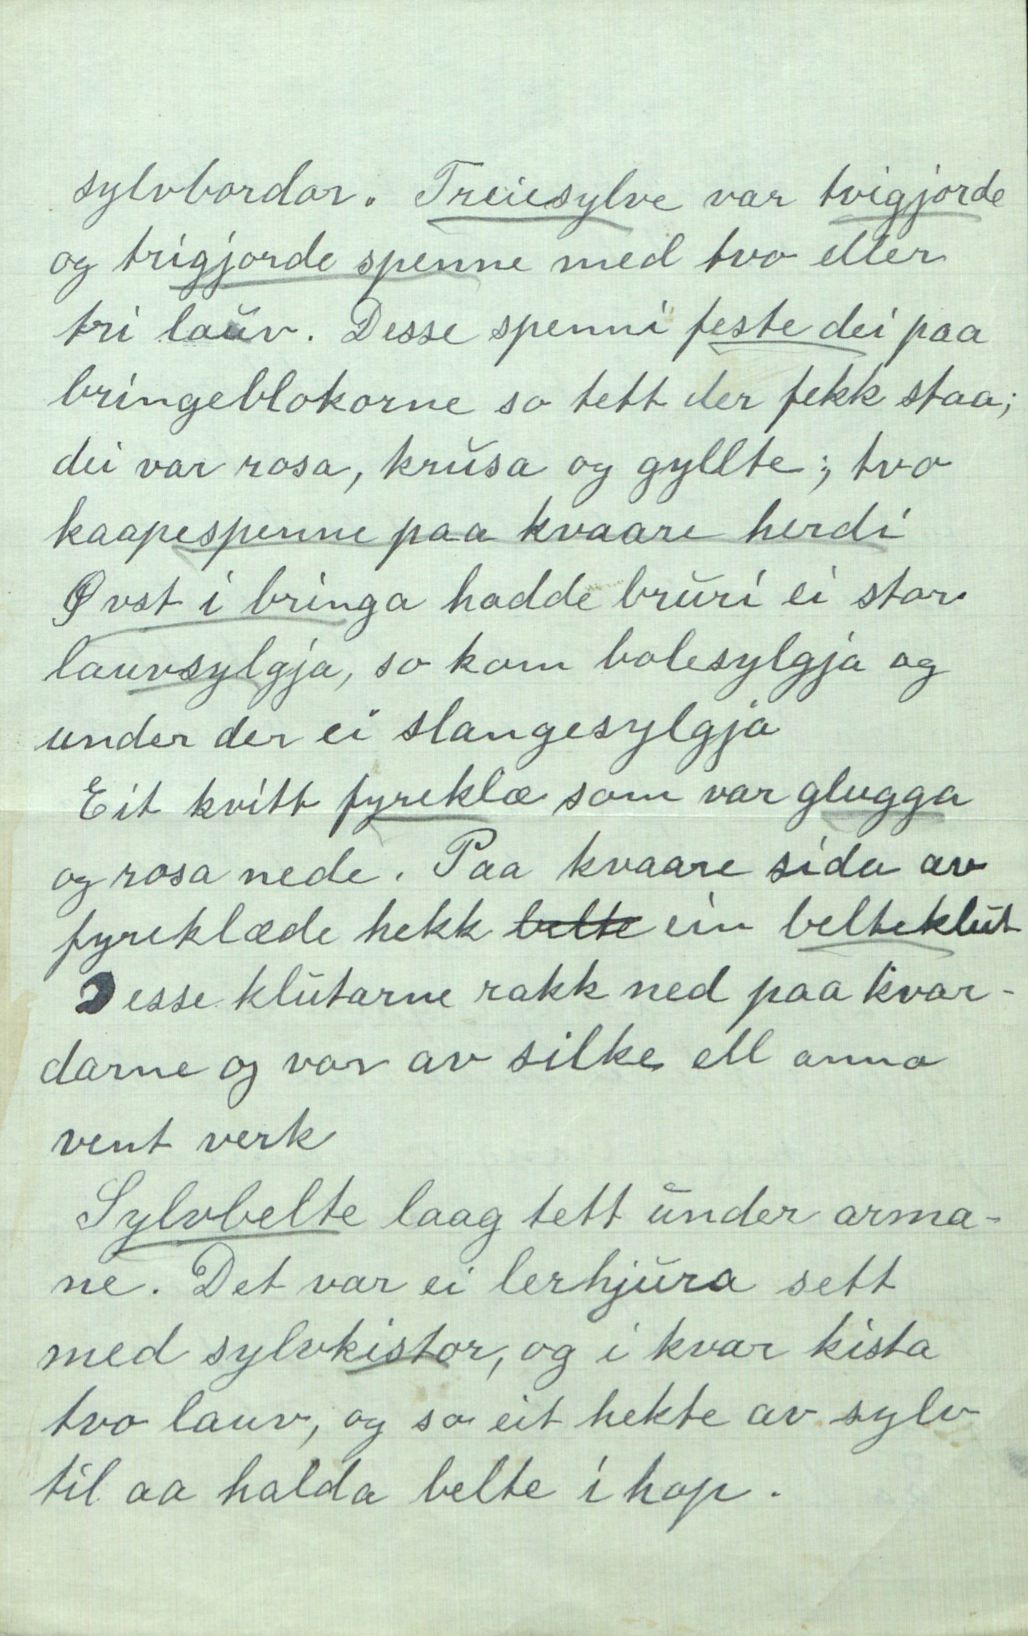 sylvbordar. Treiesylve var tvigjorde
og trigjorde spenne med tvo eller
tri lauv. Desse spenni feste dei paa
bringeblokorne so tett der fekk staa;
dei var rosa, krusa og gyllte; tvo
kaapespenne paa kvaare herdi
Øvst i bringa hadde bruri ei stor
lauvsylgja, so kom bolesylgja og
under der ei slangesylgja
Eit kvitt fyreklæ som var glugga
og rosa nede. Paa kvaare sida av
fyreklæde hekk belte ein belteklut
Desse klutarne rakk ned paa kvar-
darne og var av silke ell anna
vent verk
Sylvbelte laag tett under arma-
ne. Det var ei lerhjura sett
med sylvkistor, og i kvar kista
tvo lauv, og so eit hekte av sylv
til aa halda belte i hop.